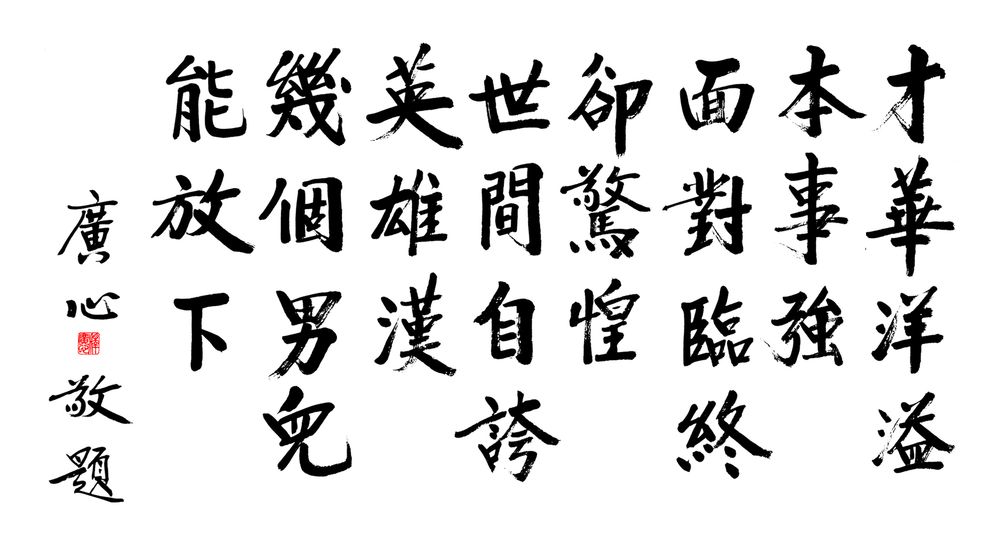 才華洋溢
本事強
面對臨終
卻驚惶
世間自誇
英雄漢
幾個男兒
能放下
廣心敬題